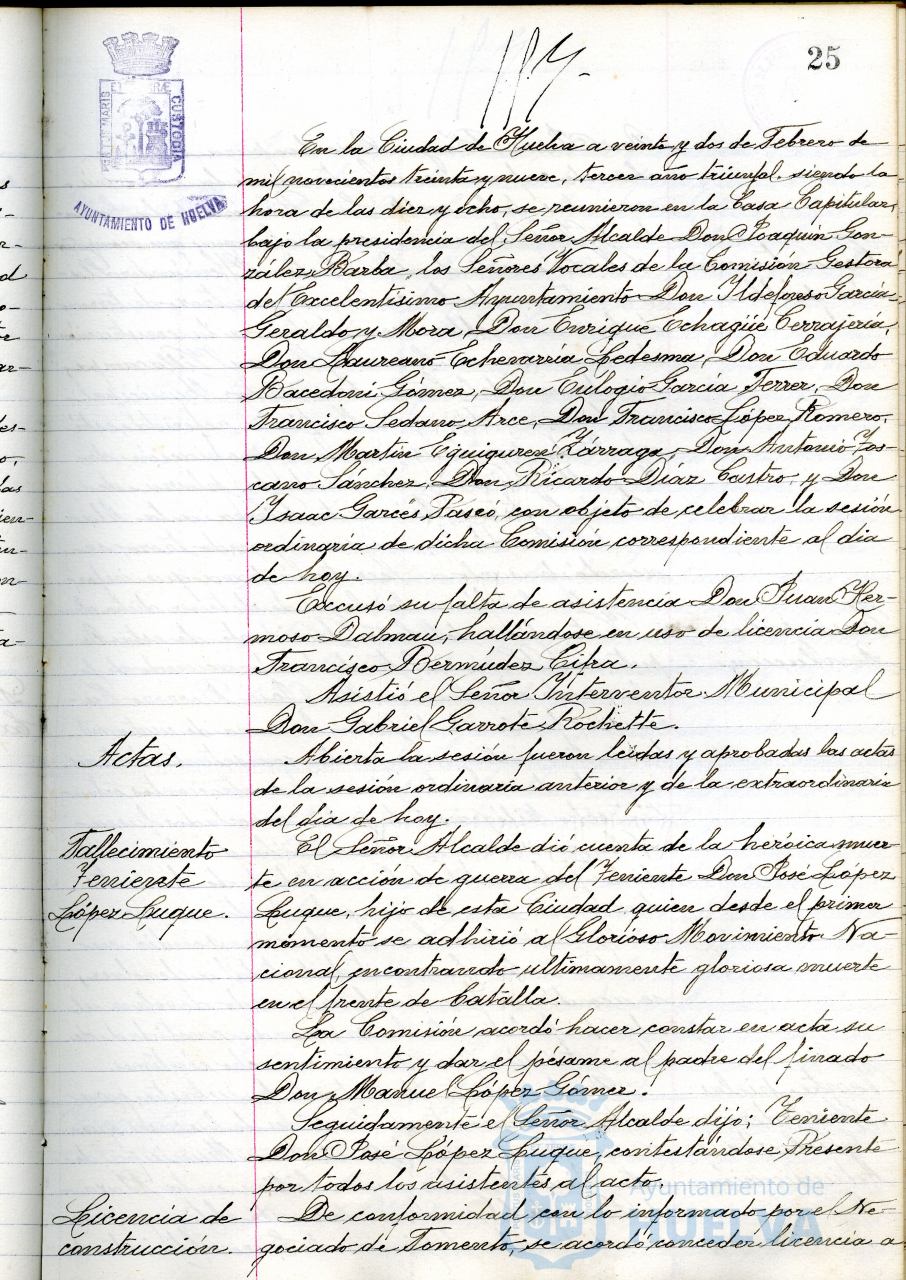 25
PORTUS MARIS ET TERRÆ CUSTODIA
AYUNTAMIENTO DE HUELVA
En la Ciudad de Huelva a veinte y dos de Febrero de
mil novecientos treinta y nueve, tercer año triunfal. siendo la
hora de las diez y ocho, se reunieron en la Casa Capitular,
bajo la presidencia del Señor Alcalde Don Joaquín Gon-
zález Barba, los Señores Vocales de la Comisión Gestora
del Excelentísimo Ayuntamiento Don Ildefonso García-
Geraldo y Mora, Don Enrique Echagüe Cerrajería,
Don Laureano Echevarría Ledesma, Don Eduardo
Bacedoni Gómez, Don Eulogio García Ferrer, Don
Francisco Sedano Arce, Don Francisco López Romero,
Don Martín Eguiguren Zárraga, Don Antonio Tos-
cano Sánchez, Don Ricardo Díaz Castro, y Don
Isaac Garcés Paseó, con objeto de celebrar la sesión
ordinaria de dicha Comisión correspondiente al dia
de hoy.
Excusó su falta de asistencia Don Juan Her-
moso Dalmau, hallándose en uso de licencia Don
Francísco Bermúdez Cifra.
Asistió el Señor Interventor Municipal
Don Gabriel Garrote Rochette.
Actas.
Abierta la sesión fueron leidas y aprobadas las actas
de la sesión ordinaria anterior y de la extraordinaria
del dia de hoy.
Fallecimiento
Teniente
López Luque.
El Señor Alcalde dió cuenta de la heróica muer-
te en acción de guerra del Teniente Don José López
Luque, hijo de esta Ciudad quien desde el primer
momento se adhirió al Glorioso Movimiento Na-
cional, encontrando ultimamente gloriosa muerte
en el frente de batalla.
La Comisión acordó hacer constar en acta su
sentimiento y dar el pésame al padre del finado
Don Manuel López Gómez.
Seguidamente el Señor Alcalde dijo; Teniente
Don José López Luque, contestándose Presente
por todos los asistentes al acto.
Licencia de
construcción.
De conformidad con lo informado por el Ne-
gociado de Fomento, se acordó conceder licencia a
Ayuntamiento de
HUELVA